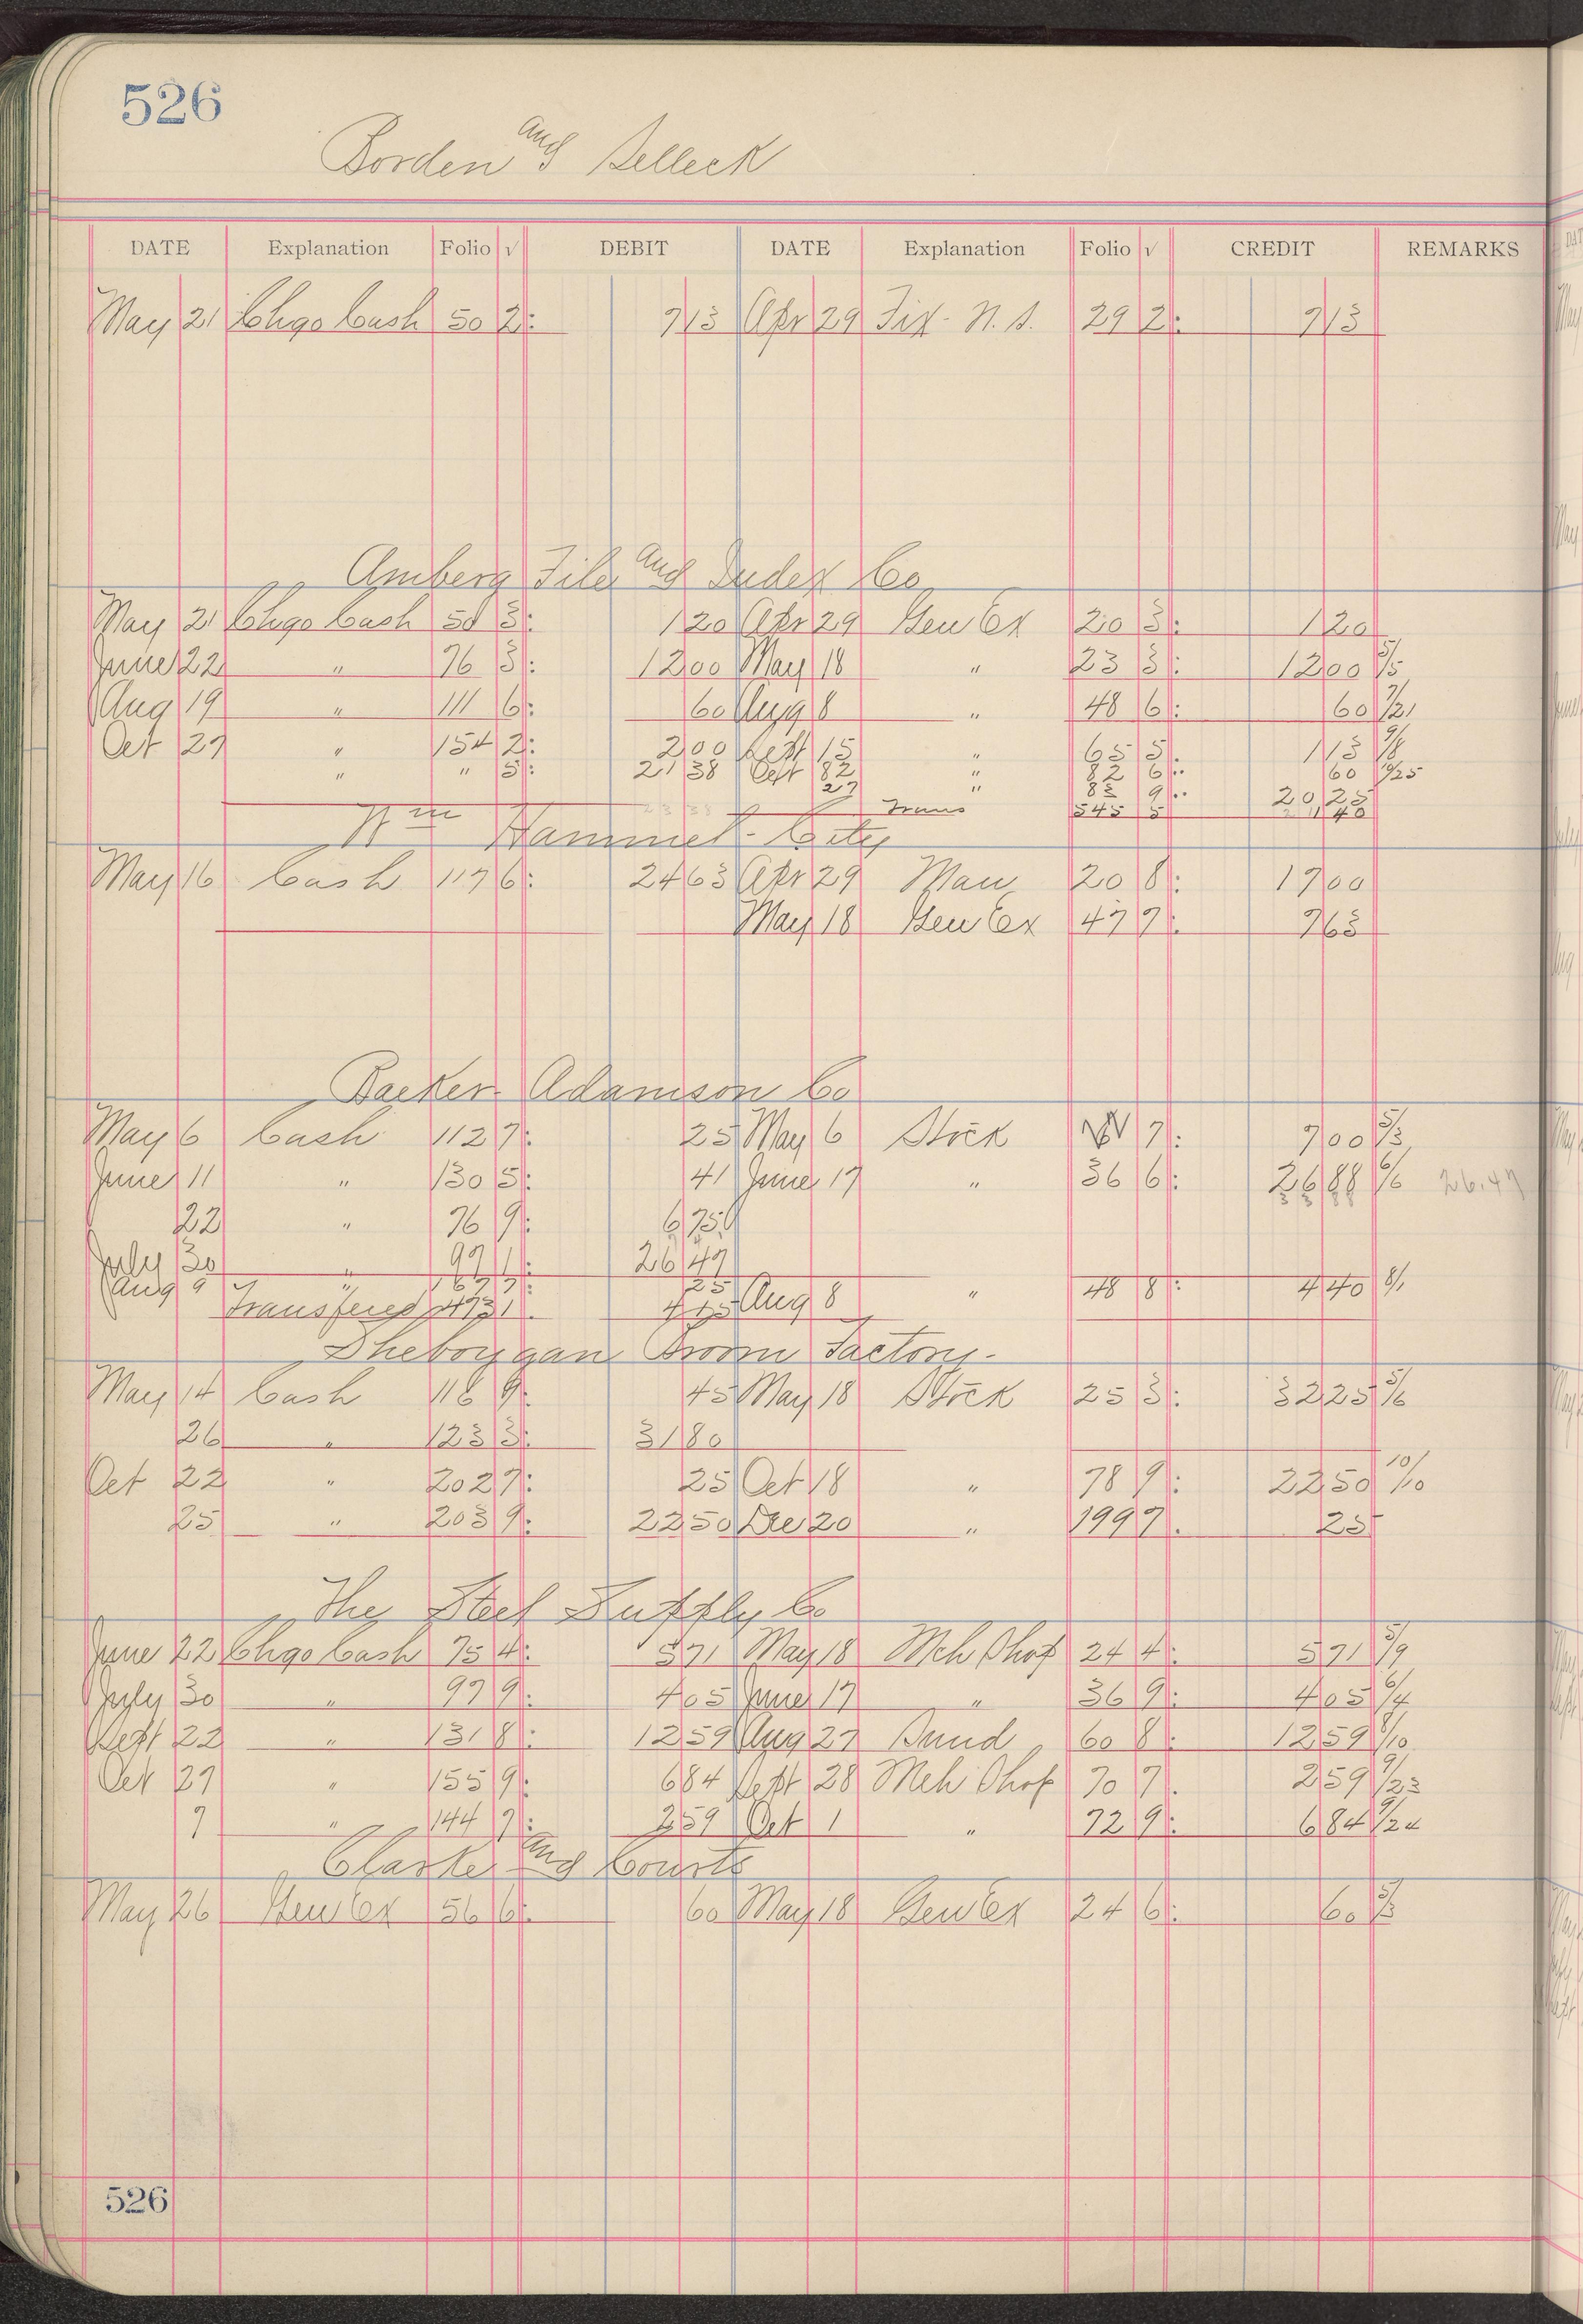 526
Borden and Selleck
DATE Explanation Folio √ DEBIT DATE Explanation Folio √ CREDIT REMARKS
May 21 Chgo Cash 50 2: 7 13 Apr 29 Fix. N. S. 29 2: 7 13
Amberg File and Index Co
May 21 Chgo Cash 50 3: 1 20 Apr 29 Gen Ex 20 3: 1 20
June 22 " 76 3: 12 00 May 18 " 23 3: 12 00 5/5
Aug 19 " 111 6: 60 Aug 8 " 48 6: 60 7/21
Oct 27 " 154 2: 2 00 Sept 15 " 65 5: 1 13 9/8
" " 5: 21 38 Oct 22 " 82 6: 60 10/25
27 " 83 9: 20 25
Trans 545 5 1 40
Wm Hammel - City
May 16 Cash 117 6: 24 63 Apr 29 Man 20 8: 17 00
May 18 Gen Ex 47 7: 7 63
Backer Adamson Co
May 6 Cash 112 7: 25 May 6 Stock 7: 7 00 5/3
June 11 " 130 5: 41 June 17 " 36 6: 26 88 6/6 26.47
22 " 76 9: 6 75
July 30 " 97 1: 26 47
Aug 9 " 167 7: 25
Transfered 473 1: 4 15 Aug 8 " 48 8: 4 40 8/1
Sheboygan Broom Factory -
May 14 Cash 116 9: 45 May 18 Stock 25 3: 32 25 5/6
26 " 123 3: 31 80
Oct 22 " 202 7: 25 Oct 18 " 78 9: 22 50 10/10
25 " 203 9: 22 50 Dec 20 " 199 7. 25
The Steel Supply Co
June 22 Chgo Cash 75 4: 5 71 May 18 Mch Shop 24 4: 5 71 5/9
July 30 " 97 9: 4 05 June 17 " 36 9: 4 05 6/4
Sept 22 " 131 8: 12 59 Aug 27 Sund 60 8: 12 59 8/10
Oct 27 " 155 9: 6 84 Sept 28 Mch Shop 70 7. 2 59 9/23
7 " 144 7: 2 59 Oct 1 " 72 9: 6 84 9/24
Clarke and Courts
May 26 Gen Ex 56 6: 60 May 18 Gen Ex 24 6: 60 5/3
526